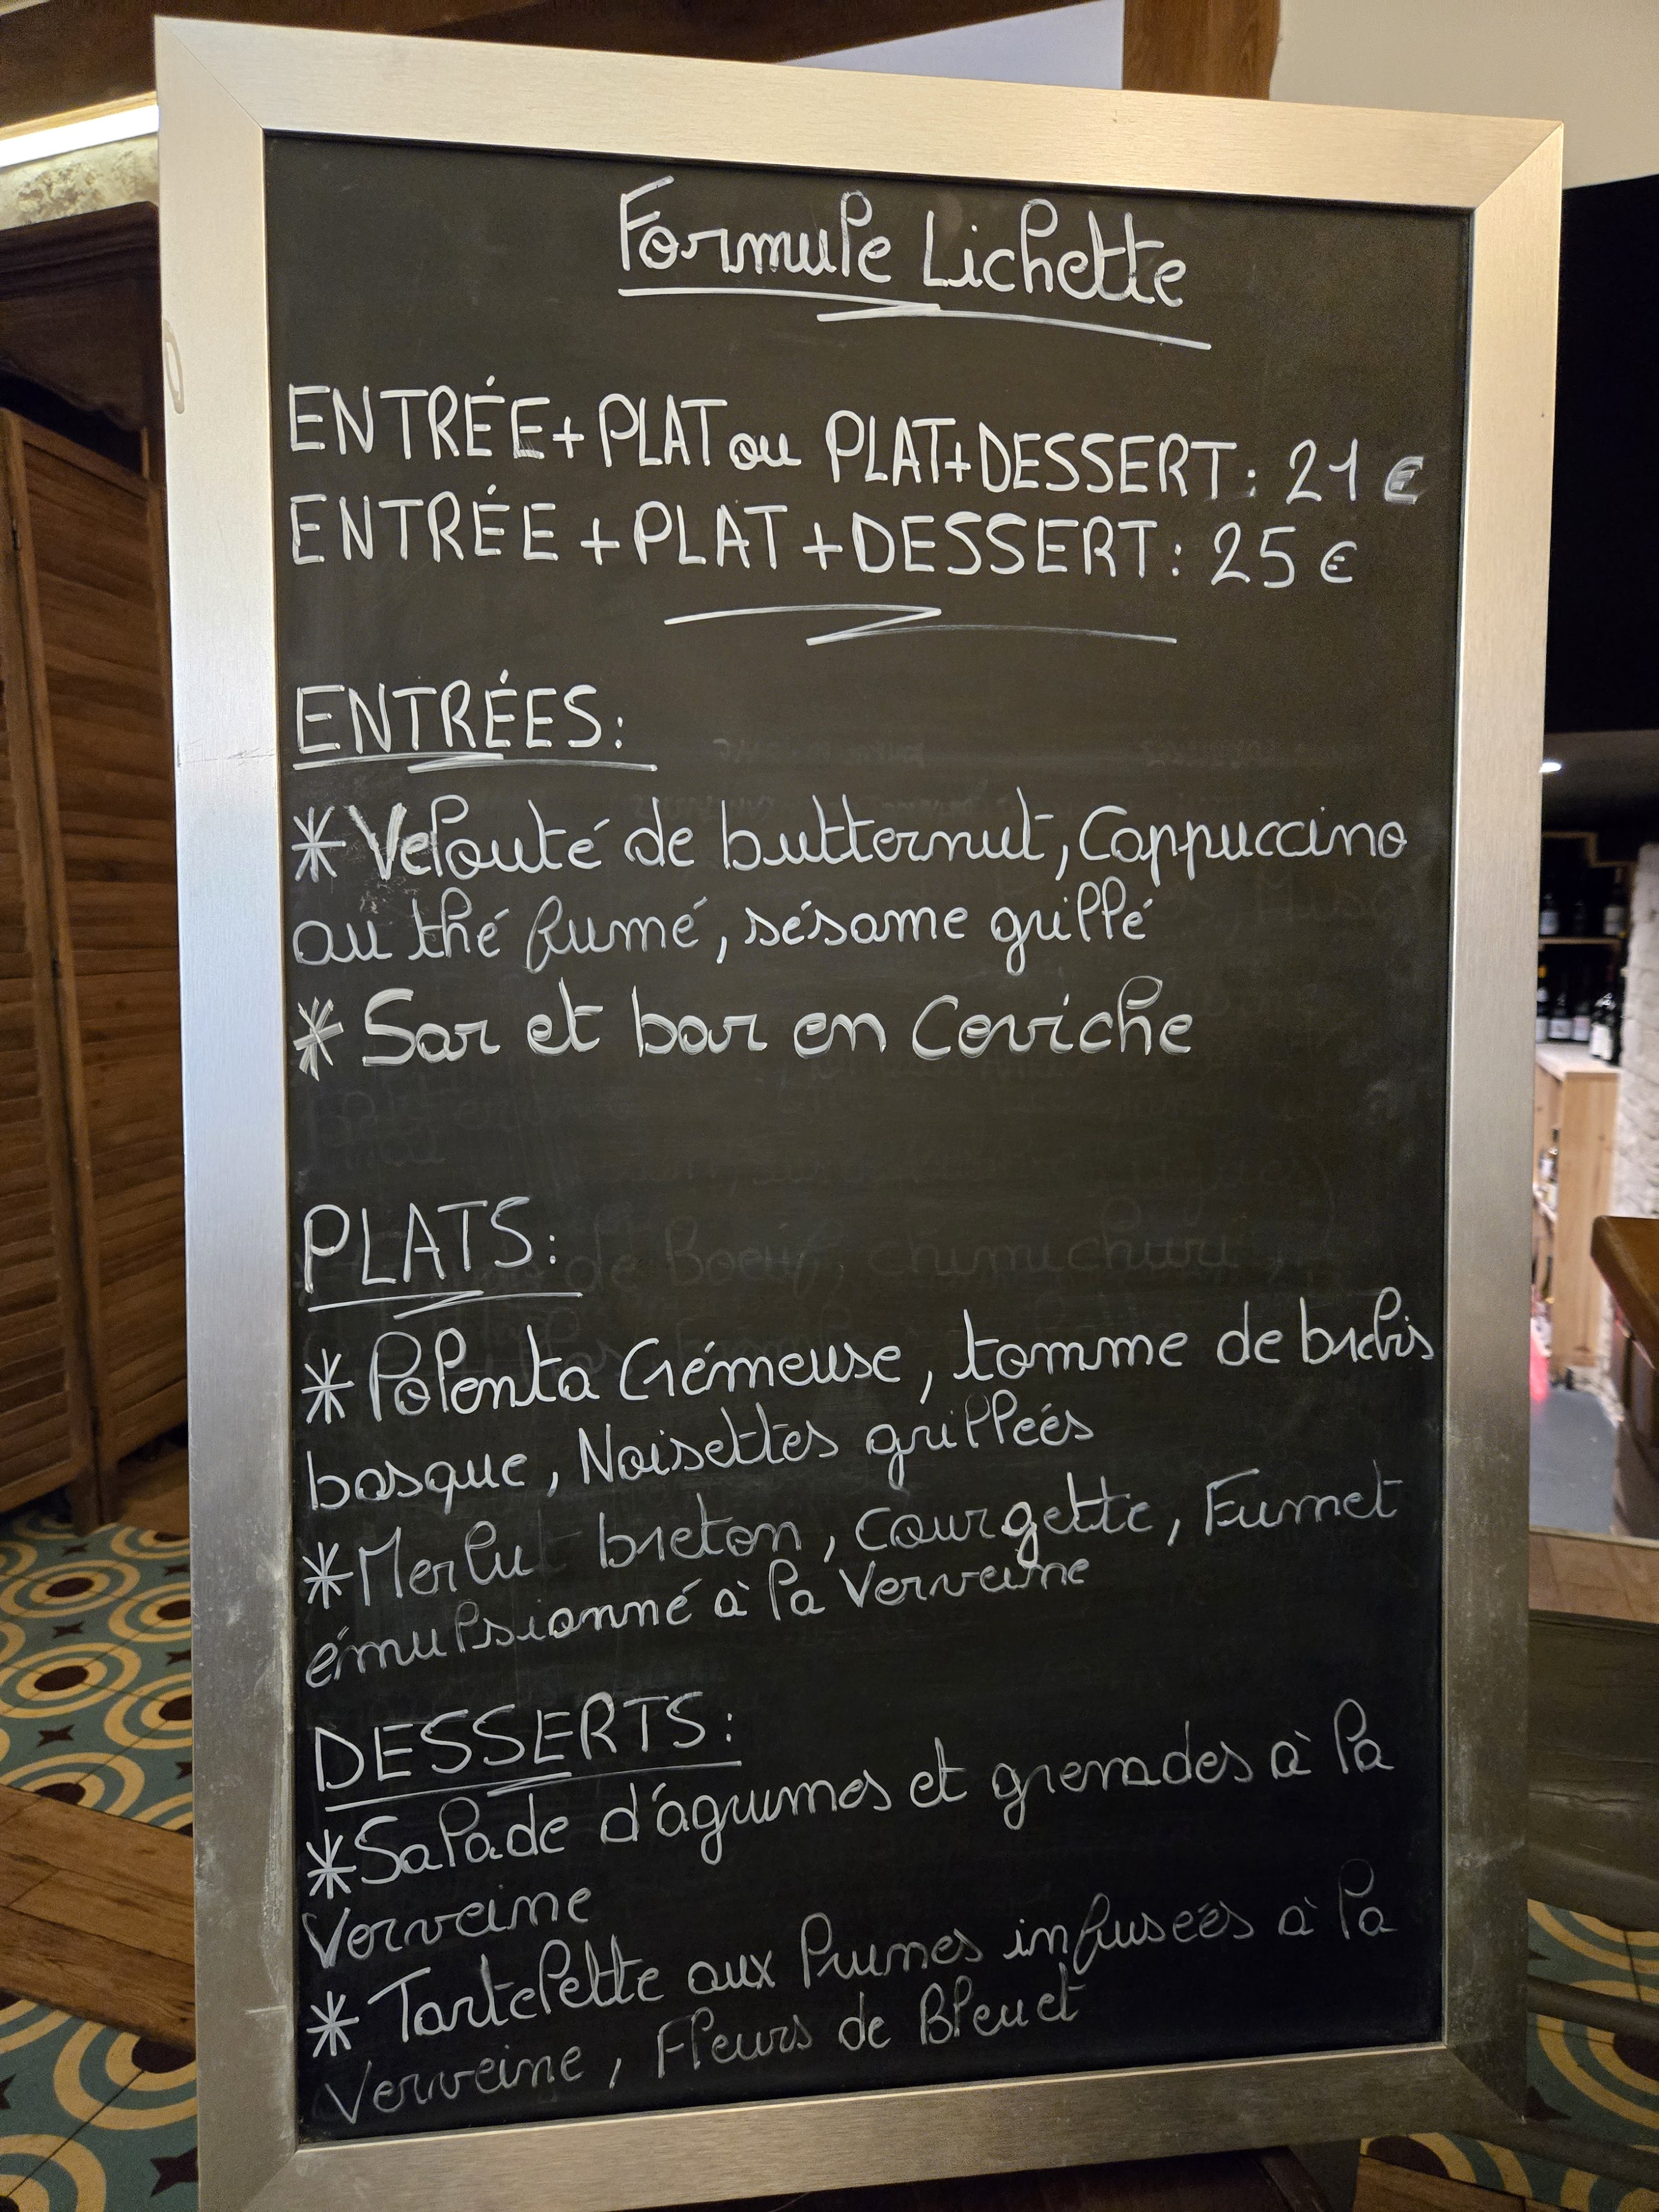 Formule Lichette
ENTRÉE+PLAT ou PLAT+DESSERT: 21 €
ENTRÉE+PLAT+DESSERT: 25 €
ENTRÉES:
* Velouté de butternut, Cappuccino
au thé fumé, sésame grillé
* Sar et bar en Ceviche
PLATS:
* Polenta Crémeuse, tomme de brebis
basque, Noisettes grillées
* Merlu breton, courgette, Fumet
émulsionné à la Verveine
DESSERTS:
* Salade d'agrumes et grenades à la
Verveine
* Tartelette aux Prunes infusées à la
Verveine, Fleurs de Bleuet